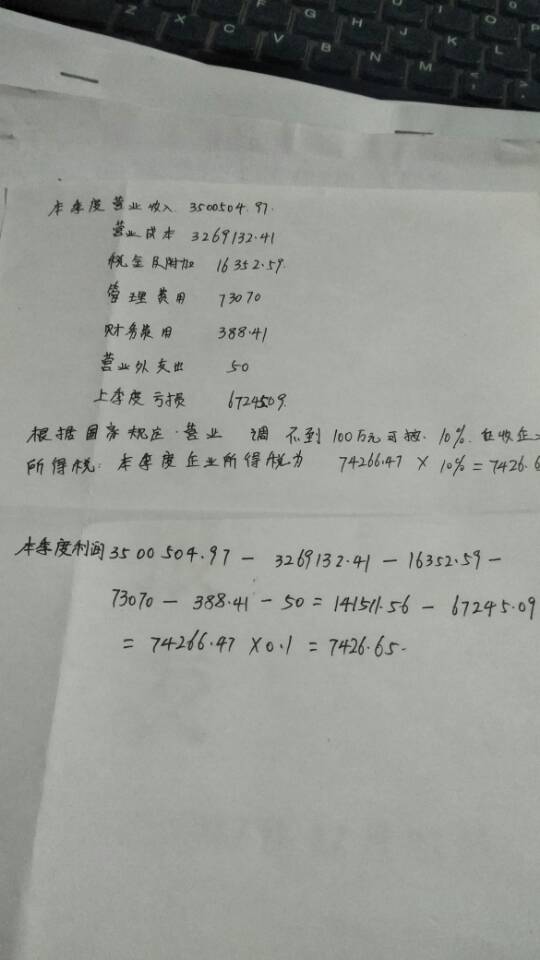 Z X C V B N M
F G H J K L
U I O P
本季度营业收入 3500504.97.
营业成本 3269132.41
税金及附加 16352.59.
管理费用 73070
财务费用 388.41
营业外支出 50
上季度亏损 67245.09.
根据国家规定.营业 调 不到100万元可按.10%.征收企
所得税:本季度企业所得税为 74266.47 × 10% = 7426.6
本季度利润 3500504.97 - 3269132.41 - 16352.59 -
73070 - 388.41 - 50 = 141511.56 - 67245.09
= 74266.47 ×0.1 = 7426.65.